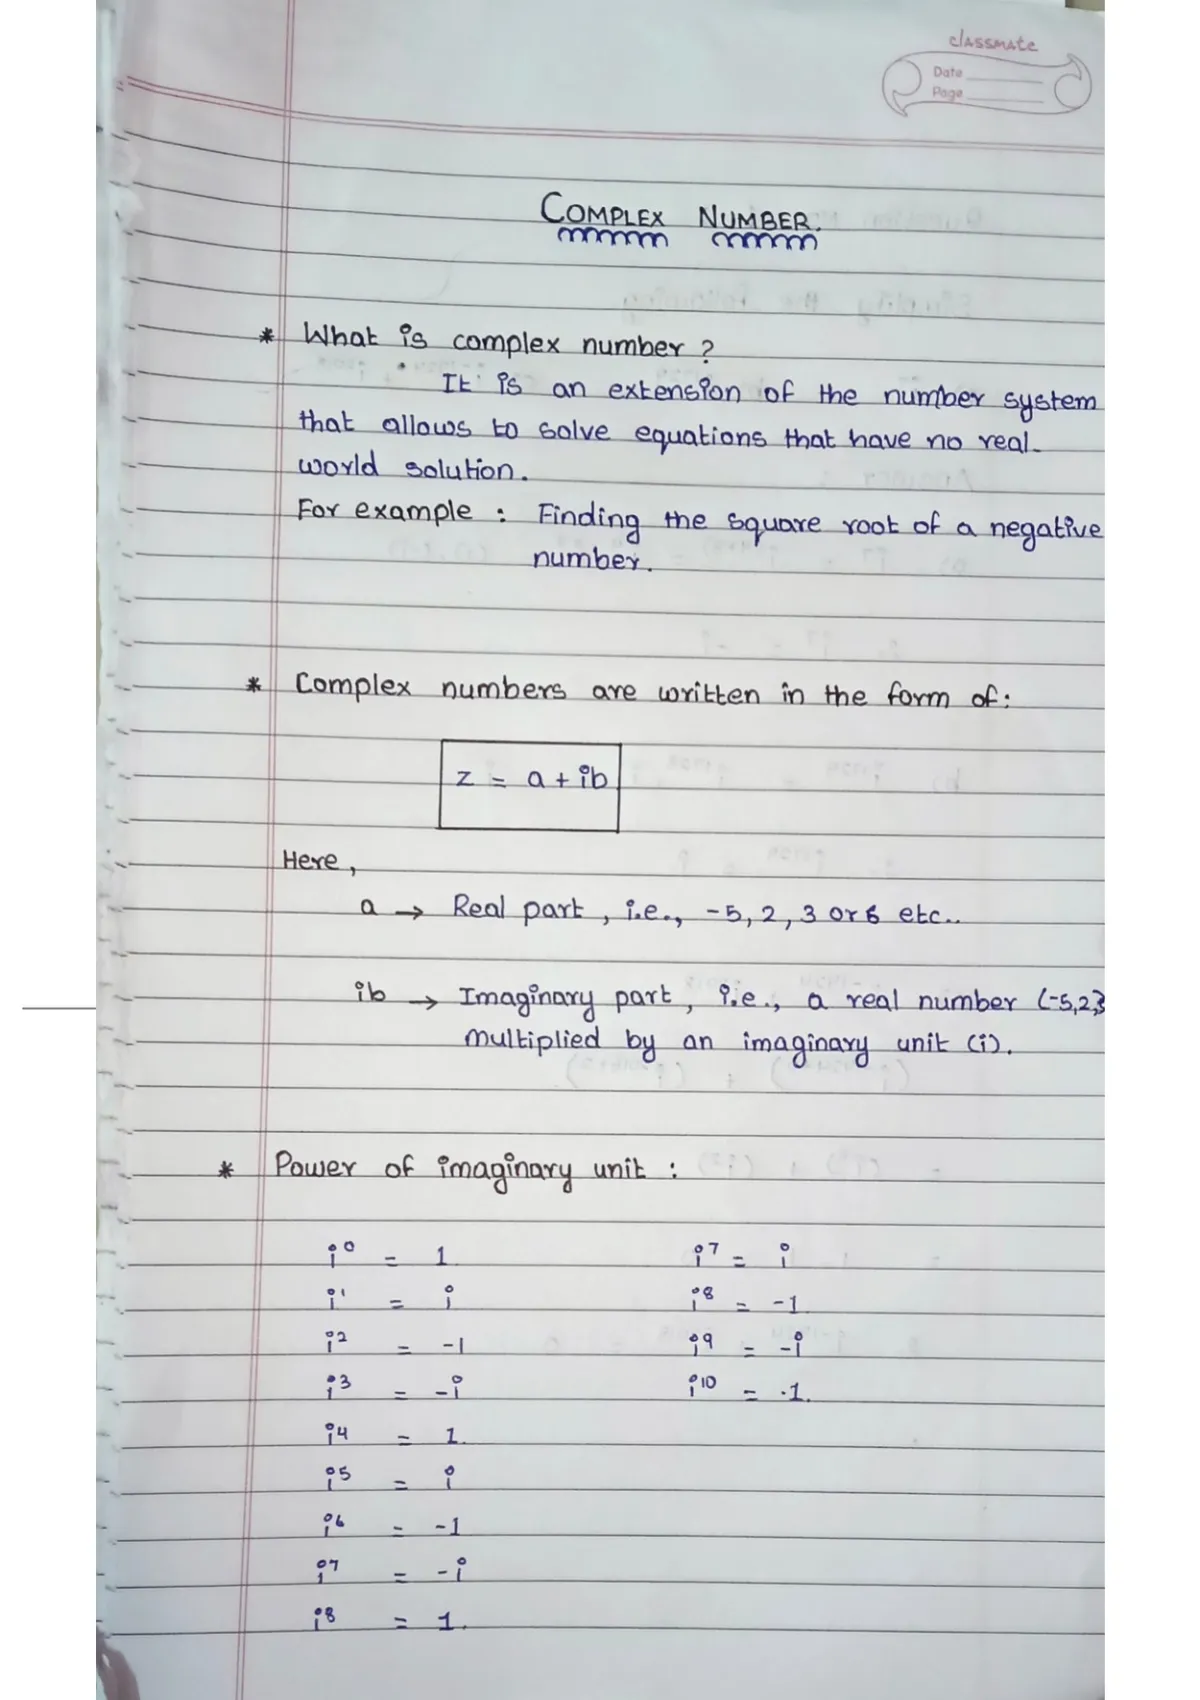 classmate
Date
Page
COMPLEX NUMBER.
* What is complex number ?
It is an extension of the number system
that allows to solve equations that have no real-
world solution.
For example : Finding the square root of a negative
number.
* Complex numbers are written in the form of :
z = a + ib
Here ,
a → Real part , i.e., -5, 2, 3 or 6 etc..
ib → Imaginary part , i.e., a real number (-5,2,3
multiplied by an imaginary unit (i).
* Power of imaginary unit :
i⁰ = 1 i⁷ = i
i¹ = i i⁸ = -1
i² = -1 i⁹ = -i
i³ = -i i¹⁰ = .1.
i⁴ = 1.
i⁵ = i
i⁶ = -1
i⁷ = -i
i⁸ = 1.